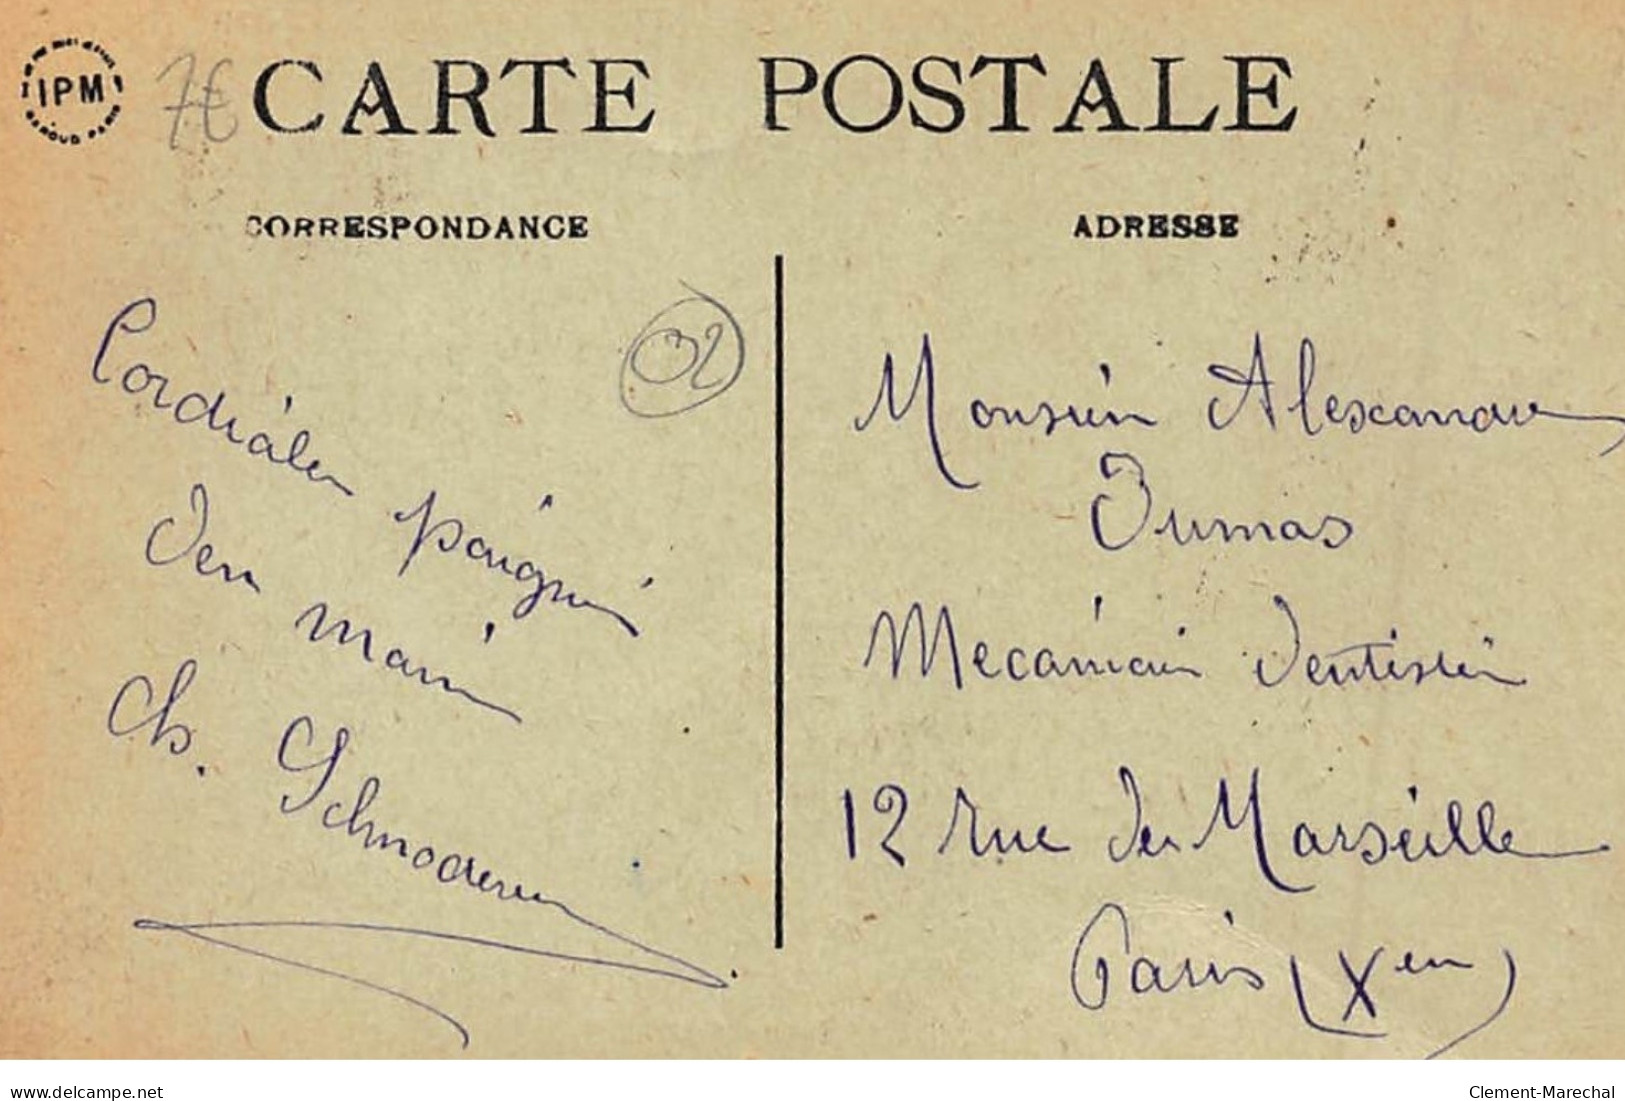 IPM
7€ CARTE POSTALE
CORRESPONDANCE
ADRESSE
02
Cordiale poignée
de main
Ch.
Monsieur Alexandre
Dumas
Mécanicien Dentiste
12 rue de Marseille
Paris (Xe)
delcampe.net
Clement-Marechal